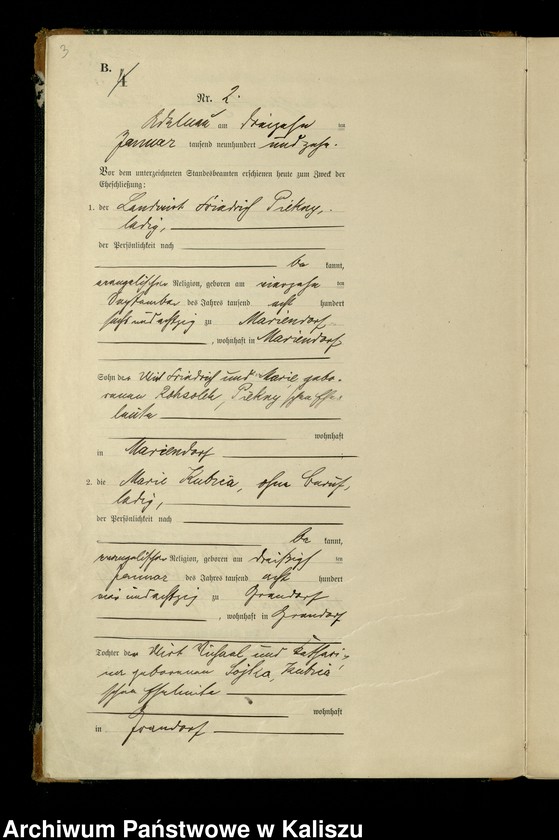 3
B.
Nr. 2.
Adelnau am dreizehn ten
Januar tausend neunhundert und zehn.
Vor dem unterzeichneten Standesbeamten erschienen heute zum Zweck der
Eheschließung:
1. der Landwirt Friedrich Piekny,
ledig,
der Persönlichkeit nach
be kannt,
evangelischer Religion, geboren am vierzehn ten
September des Jahres tausend acht hundert
sechs und achtzig zu Mariendorf
, wohnhaft in Mariendorf
Sohn der Wirt Friedrich und Marie gebo-
renen Piekny'schen Ehe-
leute
wohnhaft
in Mariendorf
2. die Marie Kubica, ohne Beruf,
ledig,
der Persönlichkeit nach
be kannt,
evangelischer Religion, geboren am dreißigsten
Januar des Jahres tausend acht hundert
neun und achtzig zu Grandorf
, wohnhaft in Grandorf
Tochter der Wirt Michael und Kathari-
na geborenen Sojka, Kubica
'schen Eheleute
wohnhaft
in Grandorf
Archiwum Państwowe w Kaliszu